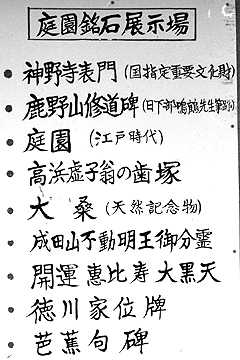 庭園銘石展示場
神野寺表門(国指定重要文化財)
鹿野山修道碑(日下部鳴鶴先生筆)
庭園(江戸時代)
高浜虚子翁の歯塚
大桑(天然記念物)
成田山不動明王御分霊
開運恵比寿大黒天
徳川家位牌
芭蕉句碑